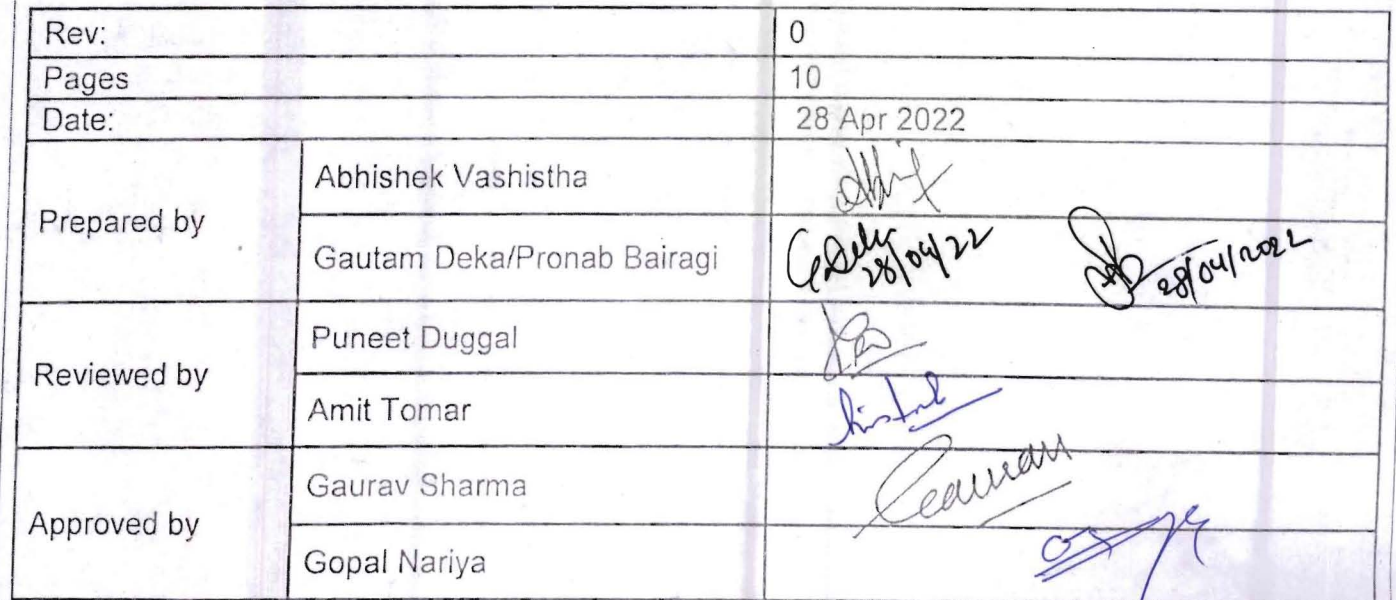 Rev: 0
Pages 10
Date: 28 Apr 2022
Prepared by
Abhishek Vashistha
Gautam Deka/Pronab Bairagi
G. Deka 28/04/22
28/04/2022
Reviewed by
Puneet Duggal
Amit Tomar
Approved by
Gaurav Sharma
Gaurav
Gopal Nariya